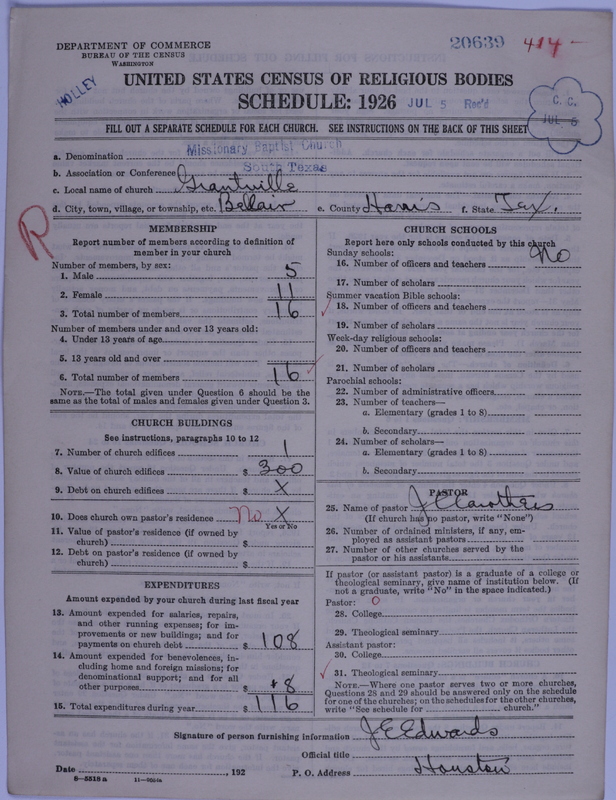 DEPARTMENT OF COMMERCE
BUREAU OF THE CENSUS
WASHINGTON
20639 414-
HOLLEY
UNITED STATES CENSUS OF RELIGIOUS BODIES
SCHEDULE: 1926 JUL 5 Rec'd
C. C.
JUL 6
FILL OUT A SEPARATE SCHEDULE FOR EACH CHURCH. SEE INSTRUCTIONS ON THE BACK OF THIS SHEET
a. Denomination Missionary Baptist Church
b. Association or Conference South Texas
c. Local name of church Grantville
d. City, town, village, or township, etc. Bellair e. County Harris f. State Tex.
R
MEMBERSHIP
Report number of members according to definition of
member in your church
Number of members, by sex:
1. Male 5
2. Female 11
3. Total number of members 16
Number of members under and over 13 years old:
4. Under 13 years of age
5. 13 years old and over
6. Total number of members 16
NOTE.—The total given under Question 6 should be the
same as the total of males and females given under Question 3.
CHURCH BUILDINGS
See instructions, paragraphs 10 to 12
7. Number of church edifices 1
8. Value of church edifices $ 300
9. Debt on church edifices $ X
10. Does church own pastor's residence No X
Yes or No
11. Value of pastor's residence (if owned by
church) $
12. Debt on pastor's residence (if owned by
church) $
EXPENDITURES
Amount expended by your church during last fiscal year
13. Amount expended for salaries, repairs,
and other running expenses; for im-
provements or new buildings; and for
payments on church debt $ 108
14. Amount expended for benevolences, in-
cluding home and foreign missions; for
denominational support; and for all
other purposes $ 8
15. Total expenditures during year $ 116
CHURCH SCHOOLS
Report here only schools conducted by this church
Sunday schools: No
16. Number of officers and teachers
17. Number of scholars
Summer vacation Bible schools:
18. Number of officers and teachers
19. Number of scholars
Week-day religious schools:
20. Number of officers and teachers
21. Number of scholars
Parochial schools:
22. Number of administrative officers
23. Number of teachers—
a. Elementary (grades 1 to 8)
b. Secondary
24. Number of scholars—
a. Elementary (grades 1 to 8)
b. Secondary
PASTOR
25. Name of pastor J C Carothers
(If church has no pastor, write "None")
26. Number of ordained ministers, if any, em-
ployed as assistant pastors
27. Number of other churches served by the
pastor or his assistants
If pastor (or assistant pastor) is a graduate of a college or
theological seminary, give name of institution below. (If
not a graduate, write "No" in the space indicated.)
Pastor: O
28. College
29. Theological seminary
Assistant pastor:
30. College
31. Theological seminary
NOTE.—Where one pastor serves two or more churches,
Questions 28 and 29 should be answered only on the schedule
for one of the churches; on the schedules for the other churches,
write "See schedule for church."
Signature of person furnishing information J E Edwards
Official title
Date , 192 P. O. Address Houston
8—5518 a